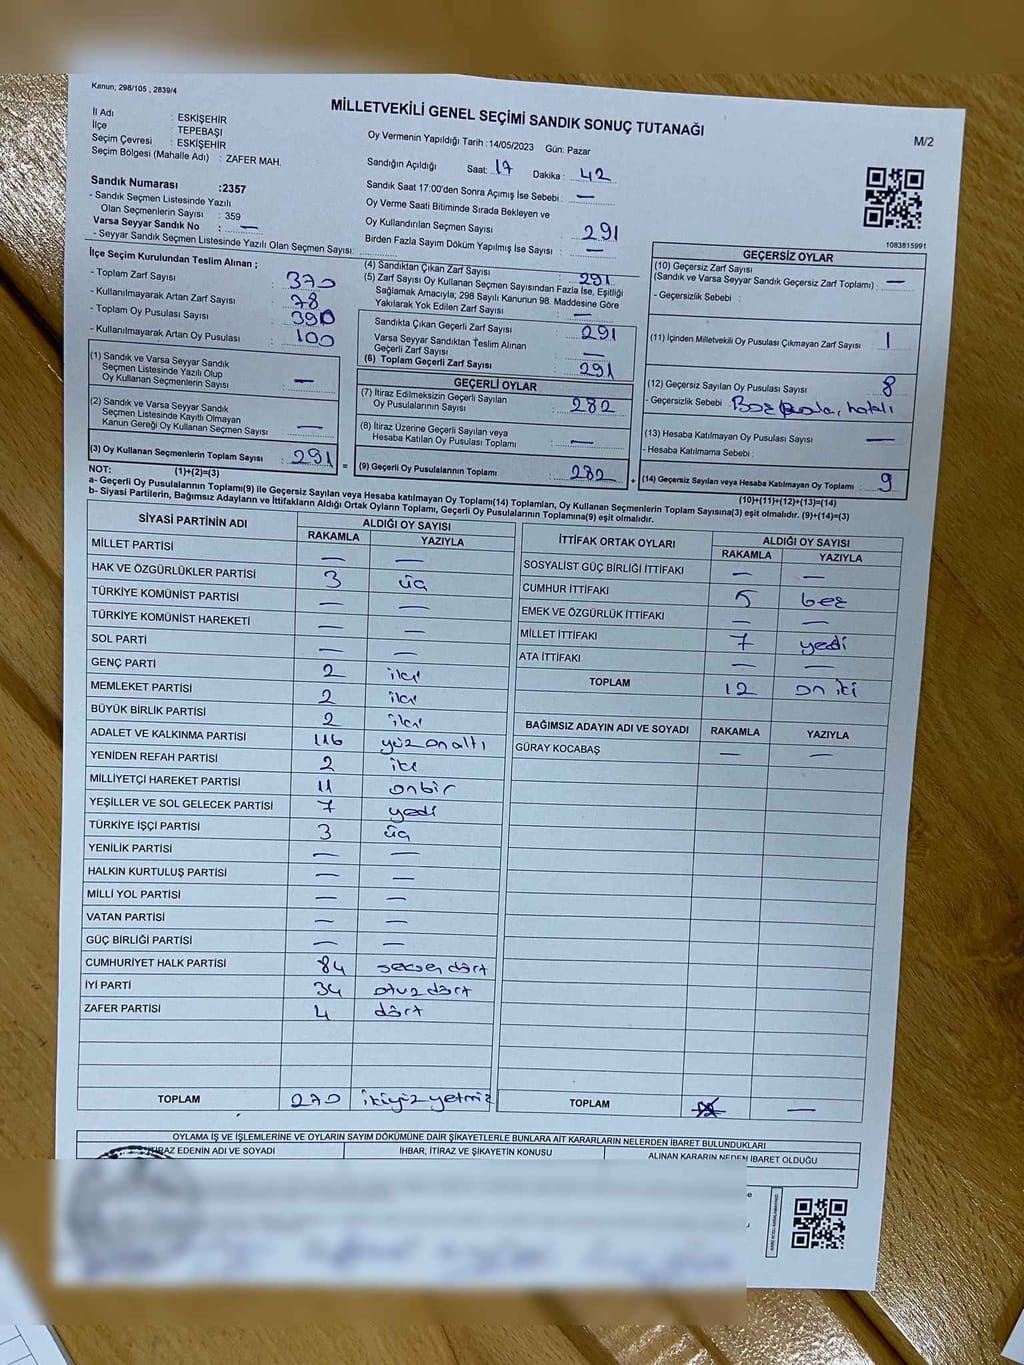 Kanun; 298/105 , 2839/4
MİLLETVEKİLİ GENEL SEÇİMİ SANDIK SONUÇ TUTANAĞI
M/2
İl Adı : ESKİŞEHİR
İlçe : TEPEBAŞI
Seçim Çevresi : ESKİŞEHİR
Seçim Bölgesi (Mahalle Adı) : ZAFER MAH.
Oy Vermenin Yapıldığı Tarih :14/05/2023 Gün: Pazar
Sandığın Açıldığı Saat: 17 Dakika : 42
Sandık Saat 17:00'den Sonra Açımış İse Sebebi : —
Oy Verme Saati Bitiminde Sırada Bekleyen ve
Oy Kullandırılan Seçmen Sayısı : 291
Birden Fazla Sayım Döküm Yapılmış İse Sayısı : —
Sandık Numarası :2357
- Sandık Seçmen Listesinde Yazılı
Olan Seçmenlerin Sayısı : 359
Varsa Seyyar Sandık No : —
- Seyyar Sandık Seçmen Listesinde Yazılı Olan Seçmen Sayısı:
1083815991
İlçe Seçim Kurulundan Teslim Alınan ;
- Toplam Zarf Sayısı : 370
- Kullanılmayarak Artan Zarf Sayısı : 78
- Toplam Oy Pusulası Sayısı : 390
- Kullanılmayarak Artan Oy Pusulası : 100
(1) Sandık ve Varsa Seyyar Sandık
Seçmen Listesinde Yazılı Olup
Oy Kullanan Seçmenlerin Sayısı : —
(2) Sandık ve Varsa Seyyar Sandık
Seçmen Listesinde Kayıtlı Olmayan
Kanun Gereği Oy Kullanan Seçmen Sayısı : —
(3) Oy Kullanan Seçmenlerin Toplam Sayısı : 291
(1)+(2)=(3)
(4) Sandıktan Çıkan Zarf Sayısı : 291
(5) Zarf Sayısı Oy Kullanan Seçmen Sayısından Fazla İse, Eşitliği
Sağlamak Amacıyla; 298 Sayılı Kanunun 98. Maddesine Göre
Yakılarak Yok Edilen Zarf Sayısı : —
Sandıkta Çıkan Geçerli Zarf Sayısı : 291
Varsa Seyyar Sandıktan Teslim Alınan
Geçerli Zarf Sayısı : —
(6) Toplam Geçerli Zarf Sayısı : 291
GEÇERLİ OYLAR
(7) İtiraz Edilmeksizin Geçerli Sayılan
Oy Pusulalarının Sayısı : 282
(8) İtiraz Üzerine Geçerli Sayılan veya
Hesaba Katılan Oy Pusulası Toplamı : —
= (9) Geçerli Oy Pusulalarının Toplamı : 282 +
GEÇERSİZ OYLAR
(10) Geçersiz Zarf Sayısı
(Sandık ve Varsa Seyyar Sandık Geçersiz Zarf Toplamı) : —
- Geçersizlik Sebebi :
(11) İçinden Milletvekili Oy Pusulası Çıkmayan Zarf Sayısı : 1
(12) Geçersiz Sayılan Oy Pusulası Sayısı : 8
- Geçersizlik Sebebi : Boş pusula, hatalı
(13) Hesaba Katılmayan Oy Pusulası Sayısı : —
- Hesaba Katılmama Sebebi :
(14) Geçersiz Sayılan veya Hesaba Katılmayan Oy Toplamı : 9
(10)+(11)+(12)+(13)=(14)
NOT:
a- Geçerli Oy Pusulalarının Toplamı(9) ile Geçersiz Sayılan veya Hesaba katılmayan Oy Toplamı(14) Toplamları, Oy Kullanan Seçmenlerin Toplam Sayısına(3) eşit olmalıdır. (9)+(14)=(3)
b- Siyasi Partilerin, Bağımsız Adayların ve İttifakların Aldığı Ortak Oyların Toplamı, Geçerli Oy Pusulalarının Toplamına(9) eşit olmalıdır.
SİYASİ PARTİNİN ADI ALDIĞI OY SAYISI
RAKAMLA YAZIYLA
MİLLET PARTİSİ — —
HAK VE ÖZGÜRLÜKLER PARTİSİ 3 üç
TÜRKİYE KOMÜNİST PARTİSİ — —
TÜRKİYE KOMÜNİST HAREKETİ — —
SOL PARTİ — —
GENÇ PARTİ 2 iki
MEMLEKET PARTİSİ 2 iki
BÜYÜK BİRLİK PARTİSİ 2 iki
ADALET VE KALKINMA PARTİSİ 116 yüz on altı
YENİDEN REFAH PARTİSİ 2 iki
MİLLİYETÇİ HAREKET PARTİSİ 11 onbir
YEŞİLLER VE SOL GELECEK PARTİSİ 7 yedi
TÜRKİYE İŞÇİ PARTİSİ 3 üç
YENİLİK PARTİSİ — —
HALKIN KURTULUŞ PARTİSİ — —
MİLLİ YOL PARTİSİ — —
VATAN PARTİSİ — —
GÜÇ BİRLİĞİ PARTİSİ — —
CUMHURİYET HALK PARTİSİ 84 seksen dört
İYİ PARTİ 34 otuz dört
ZAFER PARTİSİ 4 dört
TOPLAM 270 ikiyüz yetmiş
İTTİFAK ORTAK OYLARI ALDIĞI OY SAYISI
RAKAMLA YAZIYLA
SOSYALİST GÜÇ BİRLİĞİ İTTİFAKI — —
CUMHUR İTTİFAKI 5 beş
EMEK VE ÖZGÜRLÜK İTTİFAKI — —
MİLLET İTTİFAKI 7 yedi
ATA İTTİFAKI — —
TOPLAM 12 on iki
BAĞIMSIZ ADAYIN ADI VE SOYADI RAKAMLA YAZIYLA
GÜRAY KOCABAŞ — —
TOPLAM —
OYLAMA İŞ VE İŞLEMLERİNE VE OYLARIN SAYIM DÖKÜMÜNE DAİR ŞİKAYETLERLE BUNLARA AİT KARARLARIN NELERDEN İBARET BULUNDUKLARI
İTİRAZ EDENİN ADI VE SOYADI İHBAR, İTİRAZ VE ŞİKAYETİN KONUSU ALINAN KARARIN NEDEN İBARET OLDUĞU